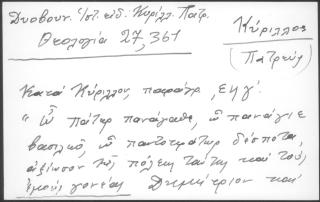 Δυοβουν. Ἱστ. εἰδ. Κυρίλλ. Πατρ.
Θεολογία 27, 361
Κύριλλος
(Πατρεύς)
Κατὰ Κύριλλον, παράγρ. ξη'.
"ὦ πάτερ πανάγαθε, ὦ πανάγιε
βασιλεῦ, ὦ παντοκράτωρ δέσποτα,
ἀξίωσον τῆς πόλεως ταύτης καὶ τοὺς
ἐμοὺς γονέας Δημήτριον καὶ